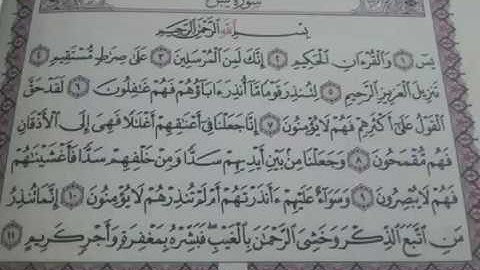 سورة يس
بسم الله الرحمن الرحيم
يسٓ ١ وَالْقُرْءَانِ الْحَكِيمِ ٢ إِنَّكَ لَمِنَ الْمُرْسَلِينَ ٣ عَلَىٰ صِرَٰطٍ مُّسْتَقِيمٍ ٤
تَنزِيلَ الْعَزِيزِ الرَّحِيمِ ٥ لِتُنذِرَ قَوْمًا مَّآ أُنذِرَ ءَابَآؤُهُمْ فَهُمْ غَٰفِلُونَ ٦ لَقَدْ حَقَّ
الْقَوْلُ عَلَىٰٓ أَكْثَرِهِمْ فَهُمْ لَا يُؤْمِنُونَ ٧ إِنَّا جَعَلْنَا فِىٓ أَعْنَٰقِهِمْ أَغْلَٰلًا فَهِىَ إِلَى الْأَذْقَانِ
فَهُم مُّقْمَحُونَ ٨ وَجَعَلْنَا مِنۢ بَيْنِ أَيْدِيهِمْ سَدًّا وَمِنْ خَلْفِهِمْ سَدًّا فَأَغْشَيْنَٰهُمْ
فَهُمْ لَا يُبْصِرُونَ ٩ وَسَوَآءٌ عَلَيْهِمْ ءَأَنذَرْتَهُمْ أَمْ لَمْ تُنذِرْهُمْ لَا يُؤْمِنُونَ ١٠ إِنَّمَا تُنذِرُ
مَنِ اتَّبَعَ الذِّكْرَ وَخَشِىَ الرَّحْمَٰنَ بِالْغَيْبِ ۖ فَبَشِّرْهُ بِمَغْفِرَةٍ وَأَجْرٍ كَرِيمٍ ١١